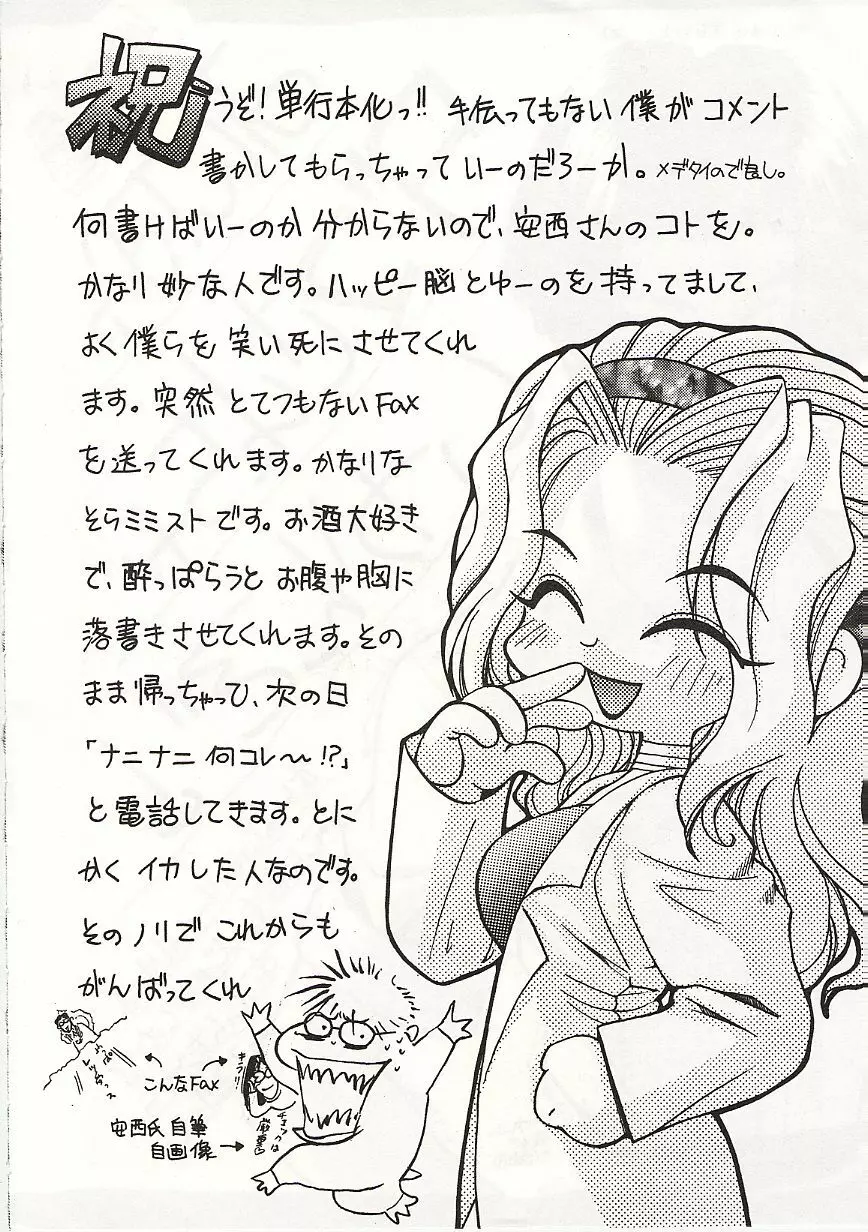 祝
うぞ!単行本化っ!! 手伝ってもない僕がコメント
書かしてもらっちゃっていーのだろーか。メデタイので良し。
何書けばいーのか分からないので、安西さんのコトを。
かなり妙な人です。ハッピー脳とゆーのを持ってまして、
よく僕らを笑い死にさせてくれ
ます。突然とてつもないFax
を送ってくれます。かなりな
そらミミストです。お酒大好き
で、酔っぱらうとお腹や胸に
落書きさせてくれます。その
まま帰っちゃって、次の日
「ナニナニ何コレ〜!?」
と電話してきます。とに
かくイカした人なのです。
そのノリでこれからも
がんばってくれ
こんなFax
安西氏自筆
自画像